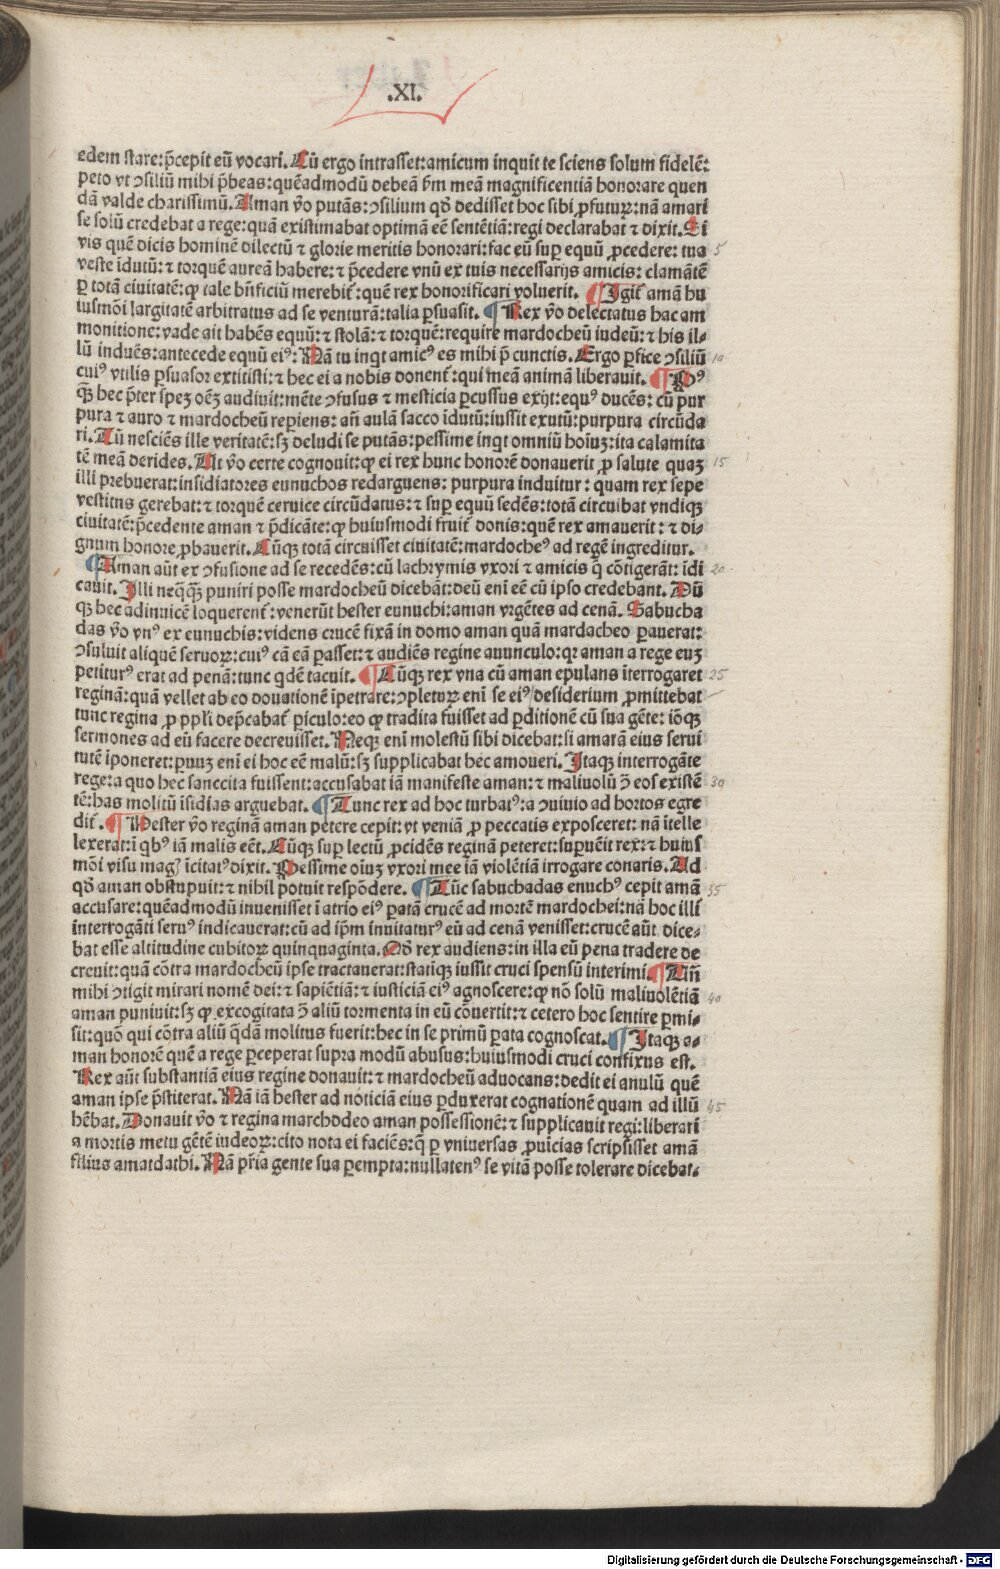 .XI.
edem stare: p̄cepit eū vocari. Cū ergo intrasset: amicum inquit te sciens solum fidelē:
peto vt ꝯsiliū mihi p̄beas: quēadmodū debeā ẜm meā magnificentiā honorare quen
dā valde charissimū. Aman v̄o putās: ꝯsilium qd̄ dedisset hoc sibi ꝓfuturꝫ: nā amari
se solū credebat a rege: quā existimabat optimā eē sentētiā: regi declarabat ⁊ dixit. Si
vis quē dicis hominē dilectū ⁊ glorie meritis honorari: fac eū suꝑ equū ꝓcedere: tua
veste īdutū: ⁊ torquē aureā habere: ⁊ p̄cedere vnū ex tuis necessarijs amicis: clamātē
ꝑ totā ciuitatē: ꝙ tale bn̄ficiū merebit̄: quē rex honorificari voluerit. ¶ Igit̄ amā hu
iusmōi largitatē arbitratus ad se venturā: talia ꝑsuasit. ¶ Rex v̄o delectatus hac am
monitione: vade ait habēs equū: ⁊ stolā: ⁊ torquē: require mardocheū iudeū: ⁊ his il⸗
lū induēs: antecede equū eiꝰ: Nā tu inqt amicꝰ es mihi p̄ cunctis. Ergo ꝑfice ꝯsiliū
cuiꝰ vtilis ꝑsuasor extitisti: ⁊ hec ei a nobis donent̄: qui meā animā liberauit. ¶ Pꝰ
qꝫ hec p̄ter speꝫ oēꝫ audiuit: mēte ꝯfusus ⁊ mesticia ꝑcussus exijt: equꝰ ducēs: cū pur
pura ⁊ auro ⁊ mardocheū repiens: añ aulā sacco īdutū: iussit exutū: purpura circūda
ri. Tū nesciēs ille veritatē: sꝫ deludi se putās: pessime inqt omniū hoīuꝫ: ita calamita
tē meā derides. Ut v̄o certe cognouit: ꝙ ei rex hunc honorē donauerit ꝓ salute quaꝫ
illi prebuerat: insidiatores eunuchos redarguens: purpura induitur: quam rex sepe
vestitus gerebat: ⁊ torquē ceruice circūdatus: ⁊ suꝑ equū sedēs: totā circuibat vndiqꝫ
ciuitatē: p̄cedente aman ⁊ p̄dicāte: ꝙ huiusmodi fruit̄ donis: quē rex amauerit: ⁊ di⸗
gnum honore ꝓbauerit. Cūqꝫ totā circuisset ciuitatē: mardochēꝰ ad regē ingreditur.
¶ Aman aūt ex ꝯfusione ad se recedēs: cū lachrymis vxori ⁊ amicis q̄ cōtigerāt: īdi
cauit. Illi neqꝙꝫ puniri posse mardocheū dicebāt: deū enī eē cū ipso credebant. Dū
qꝫ hec adinuicē loquerent̄: venerūt hester eunuchi: aman vrgētes ad cenā. Sabucha
das v̄o vnꝰ ex eunuchis: videns crucē fixā in domo aman quā mardacheo ꝑauerat:
ꝯsuluit aliquē seruorꝫ: cuiꝰ cā eā ꝑasset: ⁊ audiēs regine auunculo: qr aman a rege euꝫ
petiturꝰ erat ad penā: tunc qdē tacuit. ¶ Cūqꝫ rex vna cū aman epulans īterrogaret
reginā: quā vellet ab eo donationē īpetrare: ꝯpleturꝫ enī se eiꝰ desiderium ꝓmittebat
tunc regina ꝓ ppl̄i dep̄cabat̄ ꝑiculo: eo ꝙ tradita fuisset ad ꝑditionē cū sua gēte: iōqꝫ
sermones ad eū facere decreuisset. Neqꝫ enī molestū sibi dicebat: si amarā eius serui
tutē īponeret: ꝑuuꝫ enī ei hoc eē malū: sꝫ supplicabat hec amoueri. Itaqꝫ interrogāte
rege: a quo hec sanccita fuissent: accusabat iā manifeste aman: ⁊ maliuolū ꝯ̄ eos existē
tē: has molitū īsidias arguebat. ¶ Tunc rex ad hoc turbatꝰ: a ꝯuiuio ad hortos egre
dit̄. ¶ Hester v̄o reginā aman petere cepit: vt veniā ꝓ peccatis exposceret: nā ītelle
lexerat: ī qbꝰ iā malis eēt. Cūqꝫ suꝑ lectū ꝓcidēs reginā peteret: suꝑuēit rex: ⁊ huius
mōi visu magꝭ īcitatꝰ dixit. Pessime oīuꝫ vxori mee iā violētiā irrogare conaris. Ad
qd̄ aman obstupuit: ⁊ nihil potuit respōdere. ¶ Tūc sabuchadas enuchꝰ cepit amā
accusare: quēadmodū inuenisset ī atrio eiꝰ ꝑatā crucē ad mortē mardochei: nā hoc illi
interrogāti seruꝰ indicauerat: cū ad ip̄m inuitaturꝰ eū ad cenā venisset: crucē aūt dice⸗
bat esse altitudine cubitorꝫ quinquaginta. Qd̄ rex audiens: in illa eū pena tradere de
creuit: quā cōtra mardocheū ipse tractauerat: statiqꝫ iussit cruci spensū interimi. ¶ Tm̄
mihi ꝯtigit mirari nomē dei: ⁊ sapiētiā: ⁊ iusticiā eiꝰ agnoscere: ꝙ nō solū maliuolētiā
aman puniuit: sꝫ ꝙ excogitata ꝯ̄ aliū tormenta in eū cōuertit: ⁊ cetero hoc sentire ꝑmi⸗
sit: quō qui cōtra aliū qdā molitus fuerit: hec in se primū ꝑata cognoscat. ¶ Itaqꝫ a⸗
man honorē quē a rege ꝑceperat supra modū abusus: huiusmodi cruci confixus est.
Rex aūt substantiā eius regine donauit: ⁊ mardocheū aduocans: dedit ei anulū quē
aman ipse p̄stiterat. Nā iā hester ad noticiā eius ꝑduxerat cognationē quam ad illū
hēbat. Donauit v̄o ⁊ regina marchodeo aman possessionē: ⁊ supplicauit regi: liberari
a mortis metu gētē iudeorꝫ: cito nota ei faciēs: q̄ ꝑ vniuersas ꝓuīcias scripsisset amā
filius amatdathi. Nā p̄ria gente sua ꝑempta: nullatenꝰ se vitā posse tolerare dicebat.
5
10
15
20
25
30
35
40
45
Digitalisierung gefördert durch die Deutsche Forschungsgemeinschaft - DFG